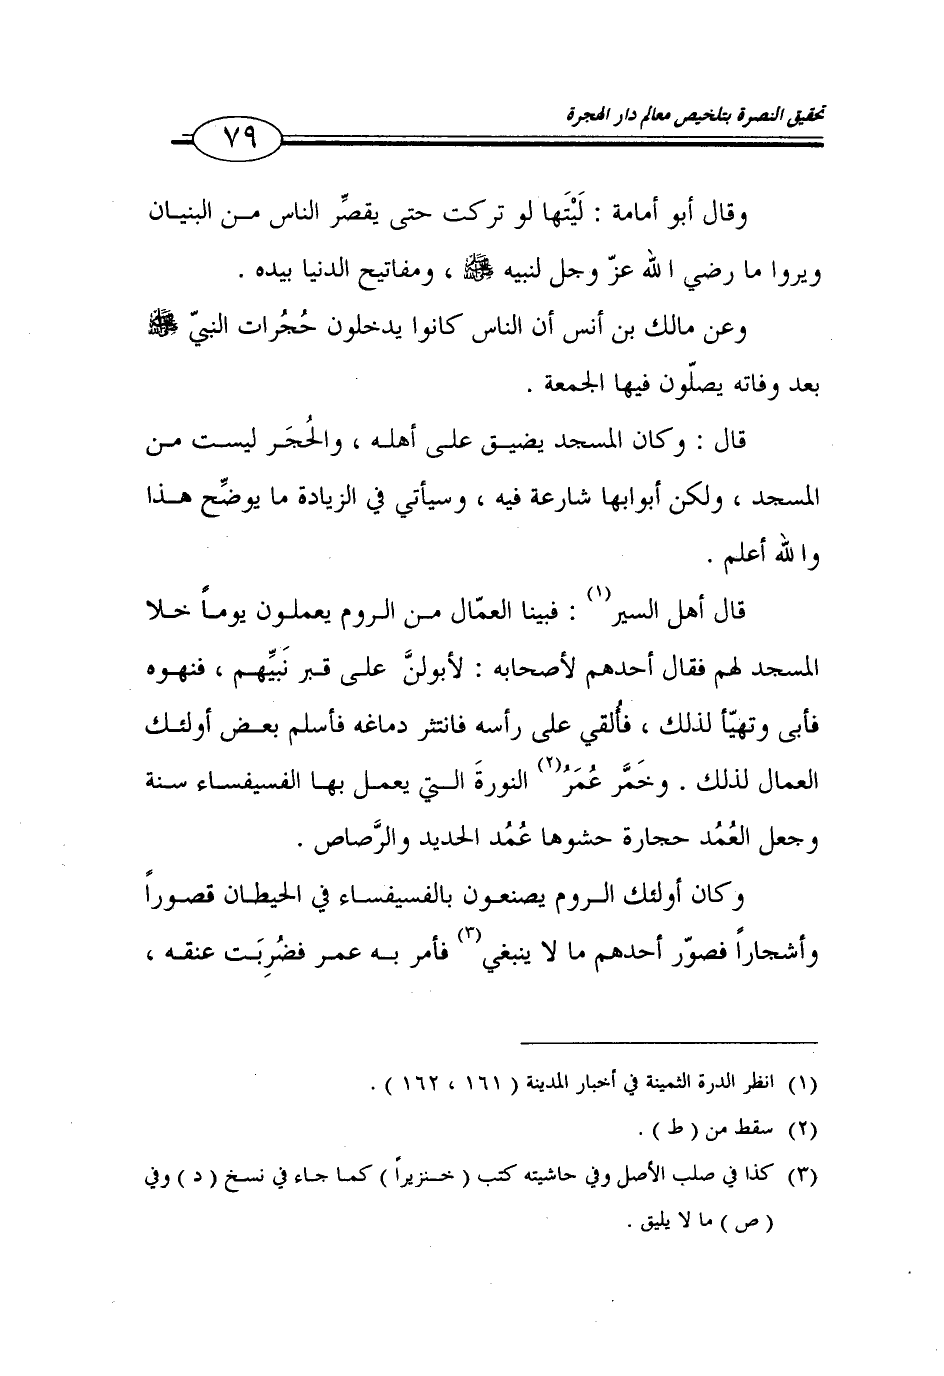 تحقيق النصرة بتلخيص معالم دار الهجرة
٧٩
وقال أبو أمامة : لَيْتَها لو تركت حتى يقصِّر الناس من البنيان
ويروا ما رضي الله عزّ وجل لنبيه ﷺ ، ومفاتيح الدنيا بيده .
وعن مالك بن أنس أن الناس كانوا يدخلون حُجُرات النبيّ ﷺ
بعد وفاته يصلّون فيها الجمعة .
قال : وكان المسجد يضيق على أهله ، والحُجَر ليست من
المسجد ، ولكن أبوابها شارعة فيه ، وسيأتي في الزيادة ما يوضِّح هذا
والله أعلم .
قال أهل السير(١) : فبينا العمّال من الروم يعملون يوماً خلا
المسجد لهم فقال أحدهم لأصحابه : لأبولنَّ على قبر نَبيِّهم ، فنهوه
فأبى وتهيّأ لذلك ، فأُلقي على رأسه فانتثر دماغه فأسلم بعض أولئك
العمال لذلك . وخَمَّر عُمَرُ(٢) النورةَ التي يعمل بها الفسيفساء سنة
وجعل العُمُد حجارة حشوها عُمُد الحديد والرَّصاص .
وكان أولئك الروم يصنعون بالفسيفساء في الحيطان قصوراً
وأشجاراً فصوّر أحدهم ما لا ينبغي(٣) فأمر به عمر فضُرِبَت عنقه ،
(١) انظر الدرة الثمينة في أخبار المدينة ( ١٦١ ، ١٦٢ ) .
(٢) سقط من ( ط ) .
(٣) كذا في صلب الأصل وفي حاشيته كتب ( خنزيراً ) كما جاء في نسخ ( د ) وفي
( ص ) ما لا يليق .